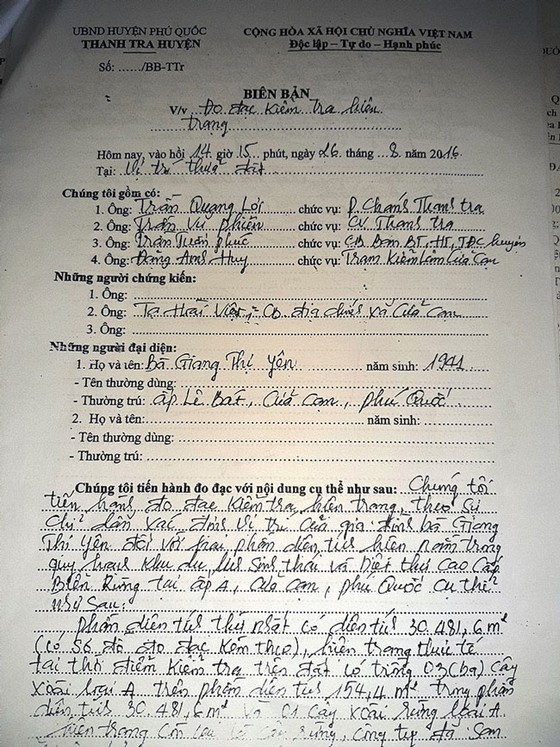 UBND HUYỆN PHÚ QUỐC
THANH TRA HUYỆN
Số: ....../BB-TTr
CỘNG HÒA XÃ HỘI CHỦ NGHĨA VIỆT NAM
Độc lập – Tự do – Hạnh phúc
BIÊN BẢN
V/v đo đạc kiểm tra hiện
trạng
Hôm nay, vào hồi 14 giờ 15 phút, ngày 26 tháng 8 năm 2016
Tại: Vị trí thửa đất
Chúng tôi gồm có:
1. Ông: Trần Quang Lợi chức vụ: P. Chánh Thanh tra
2. Ông: Trần Vũ Phiên chức vụ: CV Thanh tra
3. Ông: Trần Tuấn Phúc chức vụ: CB Ban BT, HT, TĐC huyện
4. Ông: Đặng Anh Huy chức vụ: Trạm Kiểm lâm Cửa Cạn
Những người chứng kiến:
1. Ông:
2. Ông: Tạ Hoài Việt: CB địa chính xã Cửa Cạn
3. Ông:
Những người đại diện:
1. Họ và tên: Bà Giang Thị Yên năm sinh: 1941
- Tên thường dùng:
- Thường trú: ấp Lê Bát, Cửa Cạn, Phú Quốc
2. Họ và tên: năm sinh:
- Tên thường dùng:
- Thường trú:
Chúng tôi tiến hành đo đạc với nội dung cụ thể như sau: Chúng tôi
tiến hành đo đạc kiểm tra hiện trạng, theo sự
chỉ dẫn xác định vị trí của gia đình bà Giang
Thị Yên đối với hai phần diện tích hiện nằm trong
quy hoạch khu du lịch sinh thái và Biệt thự cao cấp
Biển Rừng tại ấp 4, Cửa Cạn, Phú Quốc cụ thể
như sau:
phần diện tích thứ nhất có diện tích 30.481,6 m²
(có sơ đồ đo đạc kèm theo), hiện trạng thực tế
tại thời điểm kiểm tra trên đất có trồng 03 (ba) cây
xoài loại A trên phần diện tích 154,4 m² trong phần
diện tích 30.481,6 m² và 01 cây xoài rừng loại A.
hiện trạng còn lại là cây rừng, công ty đã san